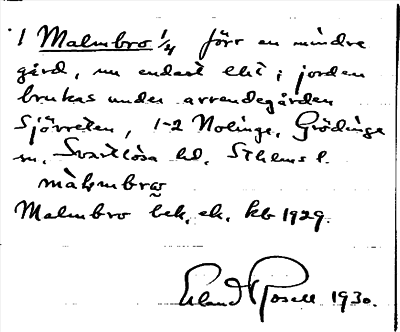 1 Malmbro 1/4 förr en mindre
gård, nu endast ett; jorden
brukas under arrendegården
Sjövreten, 1-2 Nolinge, Grödinge
sn, Svartlösa hd, Sthlms l.
màlmbrω
Malmbro bek. ek. kb 1929.
Erland Rosell 1930.